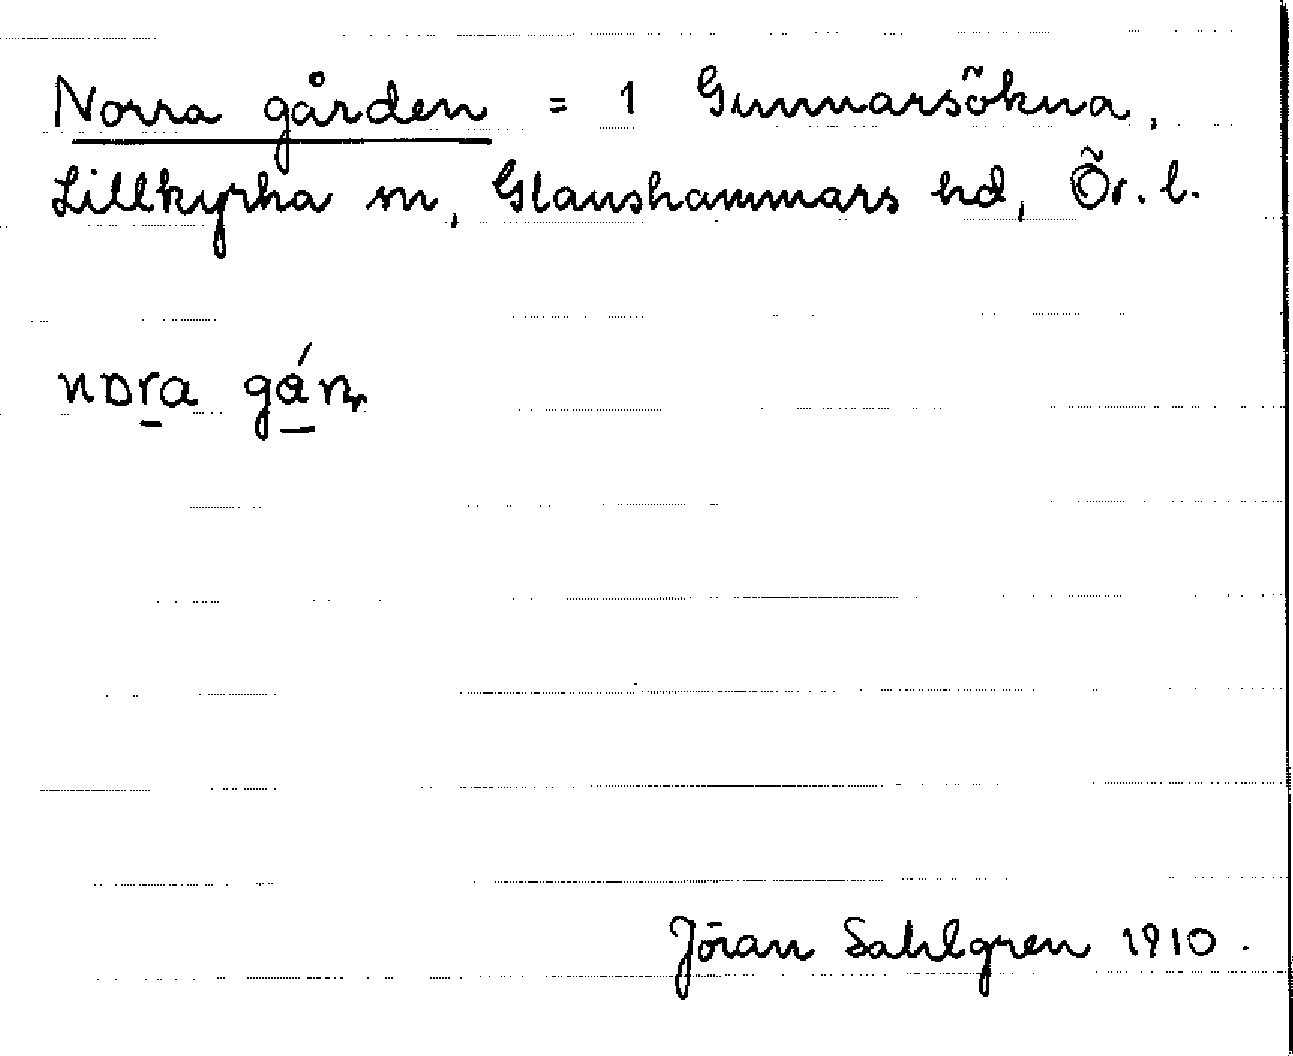 Norra gården = 1 Gunnarsökna,
Lillkyrka sn, Glanshammars hd, Ör. l.
nɒra gán
Jöran Sahlgren 1910.